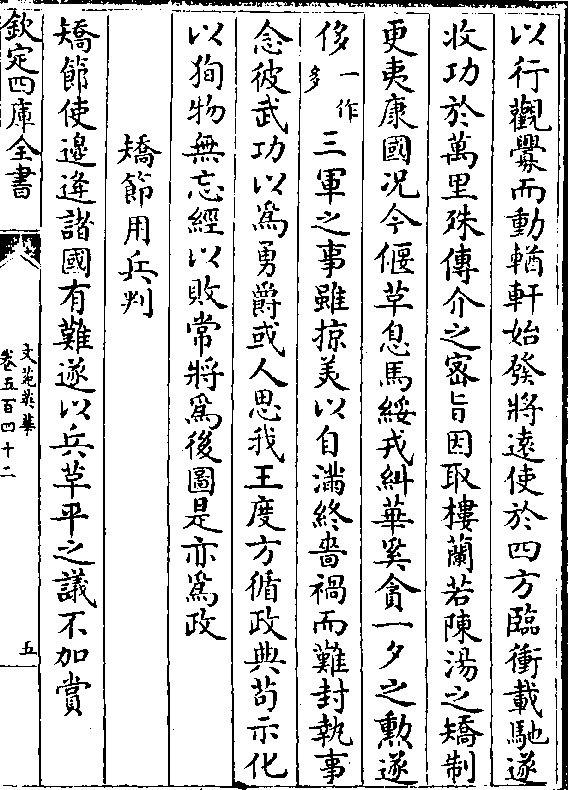 以行觀釁而動輶軒始發將遠使於四方臨衝載馳遂
收功於萬里殊傳介之宻旨因取樓蘭若陳湯之矯制
更夷康國况今偃草息馬綏戎糾華奚貪一夕之勲遂
侈一作多三軍之事雖掠美以自滿終嗇禍而難封執事
念彼武功以爲勇爵或人思我王度方循政典苟示化
以狥物無忘經以敗常將爲後圖是亦爲政
矯節用兵判
矯節使邉逄諸國有難遂以兵草平之議不加賞
欽定四庫全書
文苑英華
卷五百四十二
五